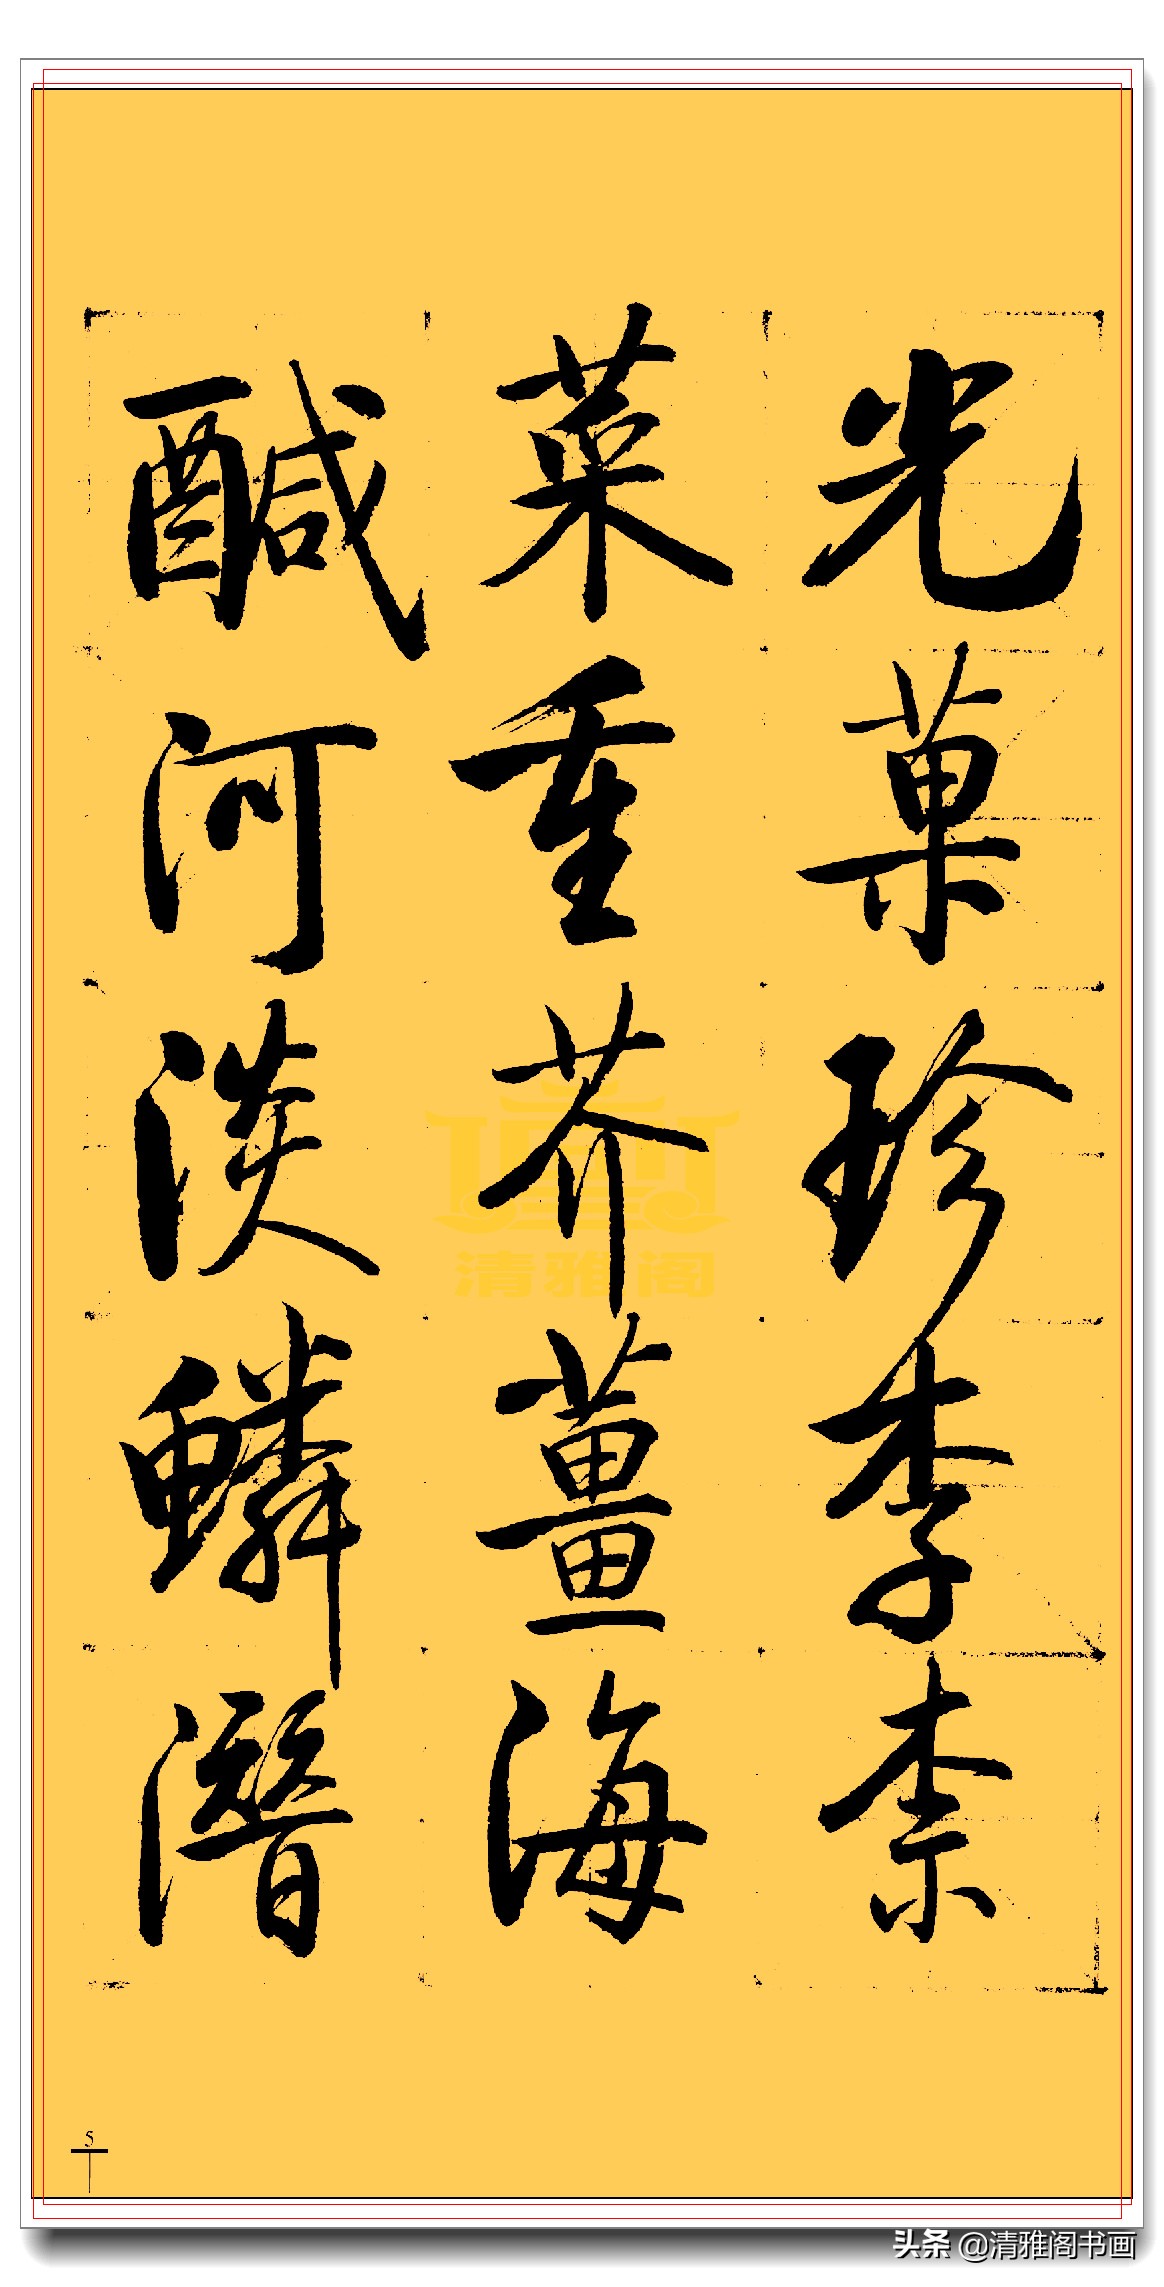 光菓珍李柰
菜重芥薑海
醎河淡鱗潛
清雅阁
5
头条 @清雅阁书画